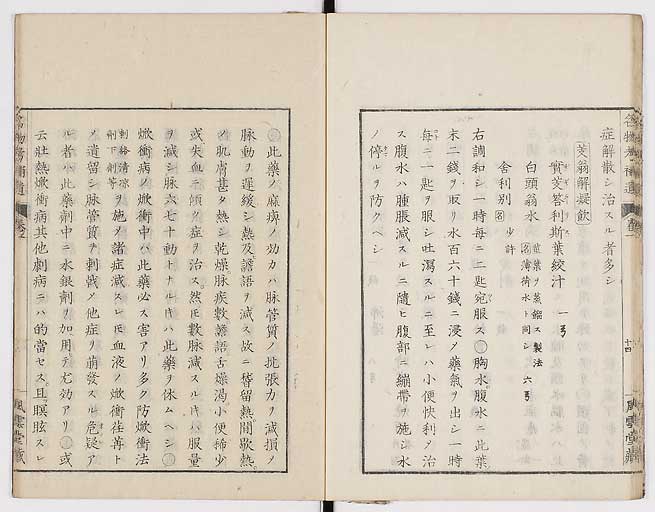 症解散シ治スル者多シ
芰翁解凝飲
實芰荅利斯葉絞汁 一弓
白頭翁水 苴葉ヲ蒸餾ス製法
名薄荷水ト同シ 六弓
舍利別名 少許
右調和シ一時每ニ二匙宛服ス○胸水腹水ニ此葉
末二錢ヲ取リ水百六十錢ニ浸メ藥氣ヲ出シ一時
每ニ一匙ヲ服シ吐瀉スルニ至レハ小便快利ヲ治
ス腹水ハ腫脹減スルニ隨ヒ腹部ニ繃帶ヲ施シ水
ノ停ルヲ防クヘシ
風雲堂藏
○此藥ノ麻痺ノ効力ハ脉管質ノ抵張力ヲ減損ノ
脉動ヲ運緩シ熱及譫語ヲ減ス故ニ稽留熱間歇熱
ノ肌膚甚タ熱シ乾燥脉疾數譫語舌燥渴小便稀少
或失血ニ傾ク症ヲ治ス然㪽數脉減スル片ハ服量
ヲ減シ脉六七十動トナル片ハ此藥ヲ休ムヘシ○
焮衝病ノ焮衝中ハ此藥必ス害アリ多ク防焮衝法
刺絡清凉
劑下劑等ヲ施ノ諸症減スレ㪽血液ノ焮衝徃苒ト
ノ遺留シ脉管質ヲ刺戟ノ他症ヲ萠發スル危疑ア
ル者ハ此藥劑中ニ水銀劑ヲ加用テ尤効アリ○或
云壯熱焮衝病其他劇病ニハ的當セス且瞑眩スレ
風雲堂藏